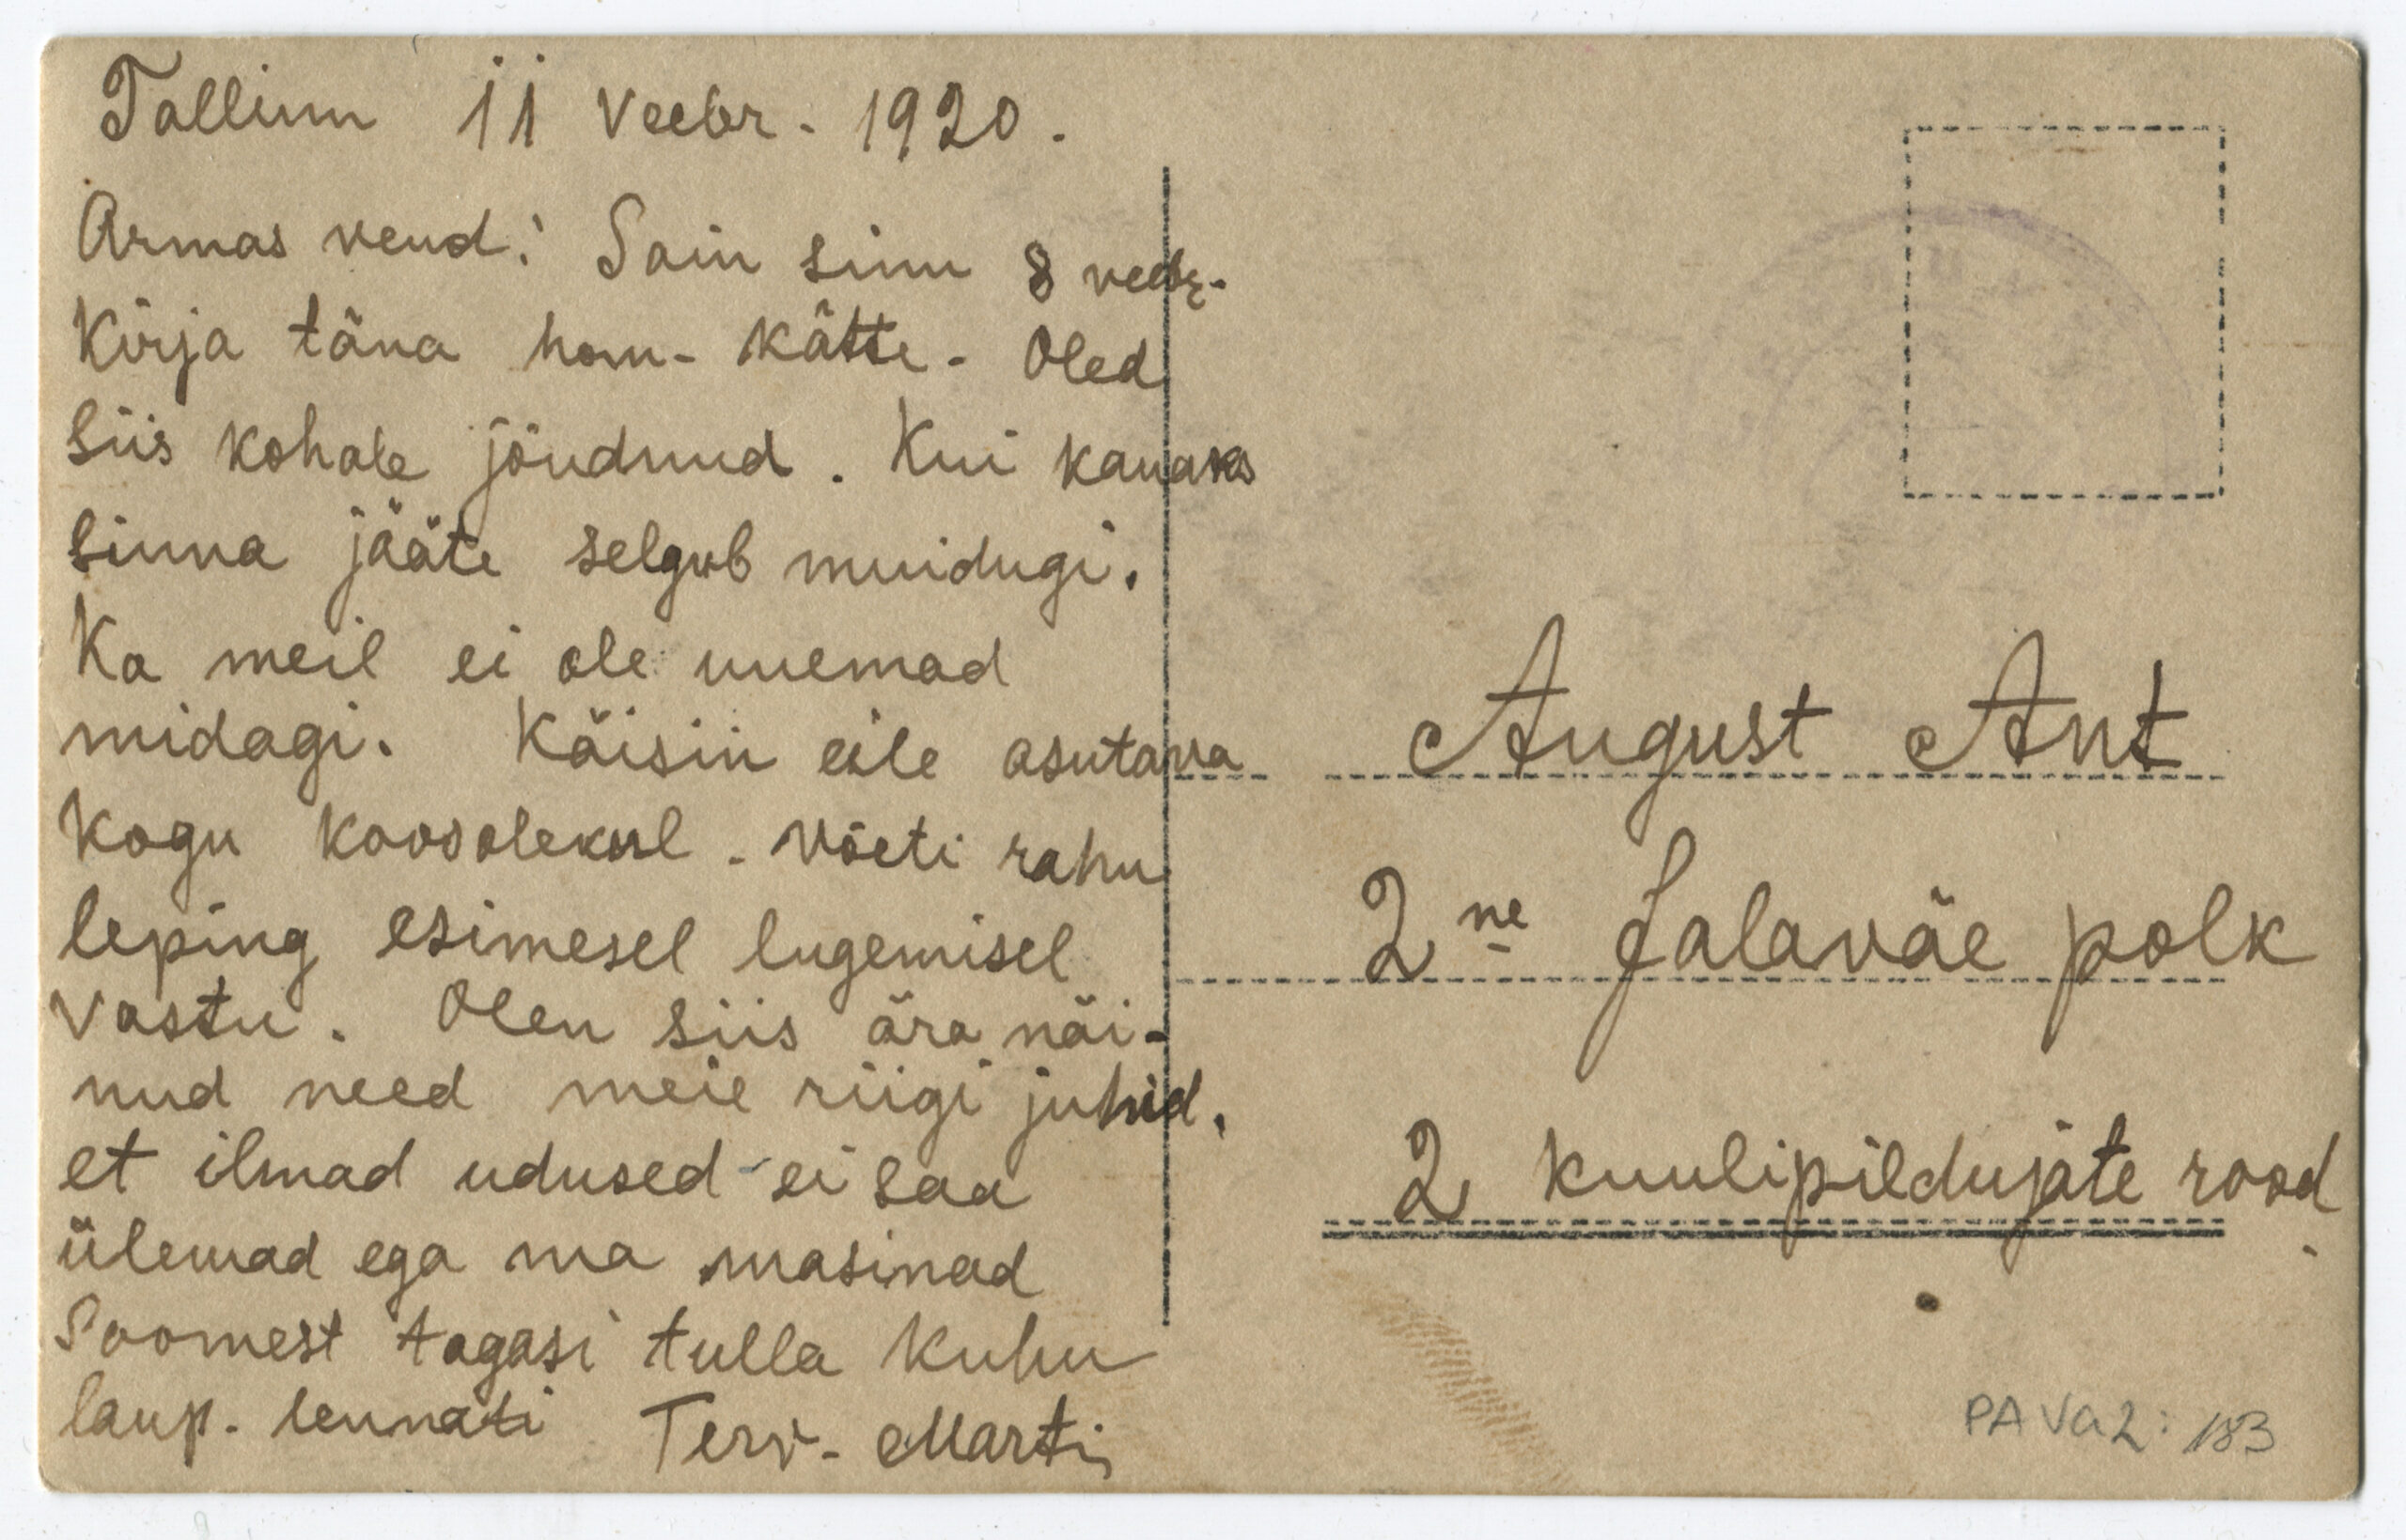 Tallinn 11 Veebr. 1920.
Armas vend! Sain sinu 8 veebr.
Kirja täna hom- kätte. Oled
siis kohale jõudnud. Kui kauaks
sinna jääte selgub muidugi.
Ka meil ei ole uuemad
midagi. Käisin eile asutava
Kogu koosolekul. Võeti rahu
leping esimesel lugemisel
vastu. Olen siis ära näi-
nud need meie riigi juhid.
et ilmad udused ei saa
ülemad ega ma masinad
Soomest tagasi tulla kuhu
laup. lennati Terv. Marti
August Ant
2ne Jalaväe polk
2 kuulipildujate rood
PA Va2: 183